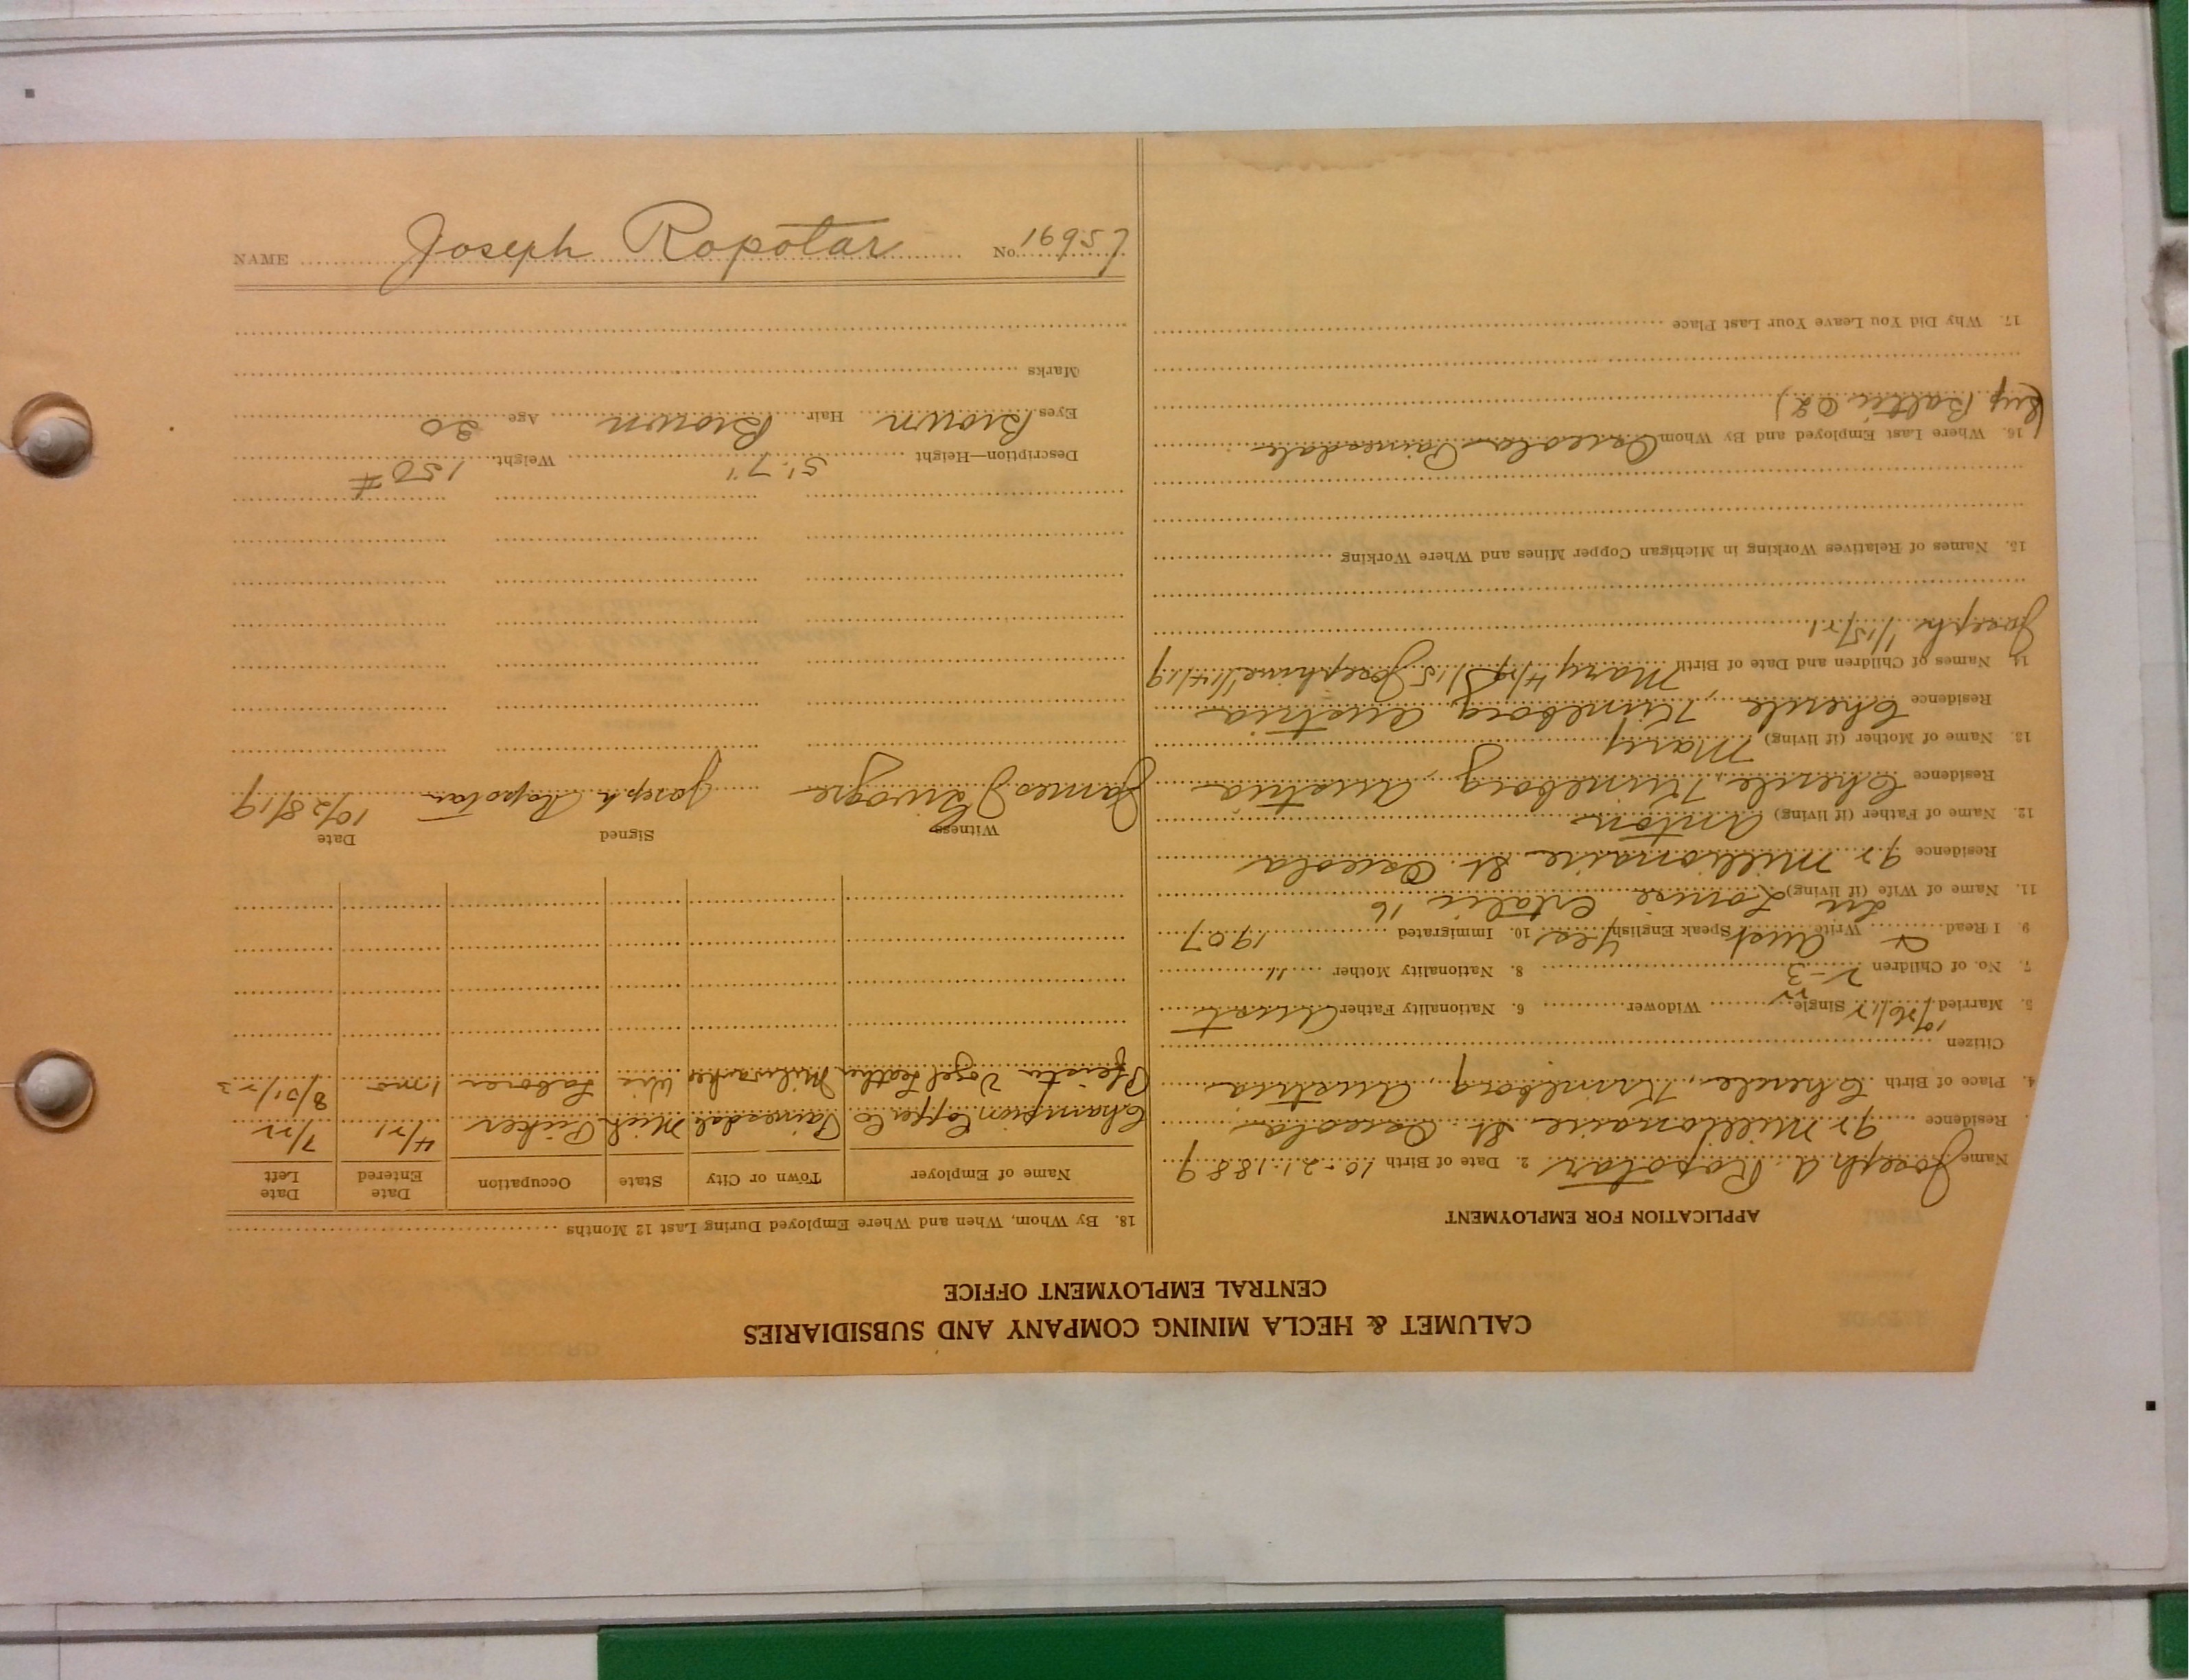 CALUMET & HECLA MINING COMPANY AND SUBSIDIARIES
CENTRAL EMPLOYMENT OFFICE
APPLICATION FOR EMPLOYMENT
Name Joseph A Ropotar 2. Date of Birth 10-21-1889
Residence 92 Millionaire St Osceola
4. Place of Birth Austria
Citizen
5. Married Single Widower 6. Nationality Father Aust
7. No. of Children 2-3 8. Nationality Mother "
9. I Read Write Aust Speak English Yes 10. Immigrated 1907
11. Name of Wife (if living) Louise
Residence 92 Millionaire St Osceola
12. Name of Father (if living) Anton
Residence Austria
13. Name of Mother (if living) Mary
Residence Austria
14. Names of Children and Date of Birth Mary Josephine 1/14/19
Joseph
15. Names of Relatives Working in Michigan Copper Mines and Where Working
16. Where Last Employed and By Whom Osceola Painesdale
Baltic 02)
17. Why Did You Leave Your Last Place
18. By Whom, When and Where Employed During Last 12 Months
Name of Employer Town or City State Occupation Date Entered Date Left
Champion Copper Co Painesdale Mich Picker 4/21 7/22
Pfister Vogel Leather Milwaukee Wis Laborer 1 mo 8/31/23
Witness Signed Date
James Joseph Ropotar 10/28/19
Description—Height 5' 7" Weight 150 #
Eyes Brown Hair Brown Age 30
Marks
NAME Joseph Ropotar No. 16957